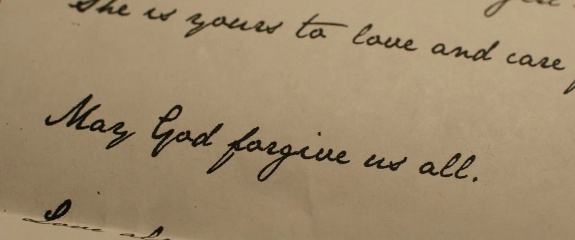 She is yours to love and care
May God forgive us all.